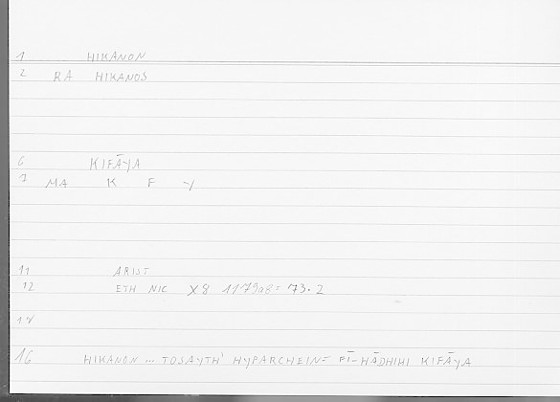 1 HIKANON
2 RA HIKANOS
6 KIFĀYA
7 MA K F Y
11 ARIST
12 ETH NIC X8 1179a8 = 73.2
14
16 HIKANON ... TOSAYTH' HYPARCHEIN = FĪ-HĀDHIHI KIFĀYA